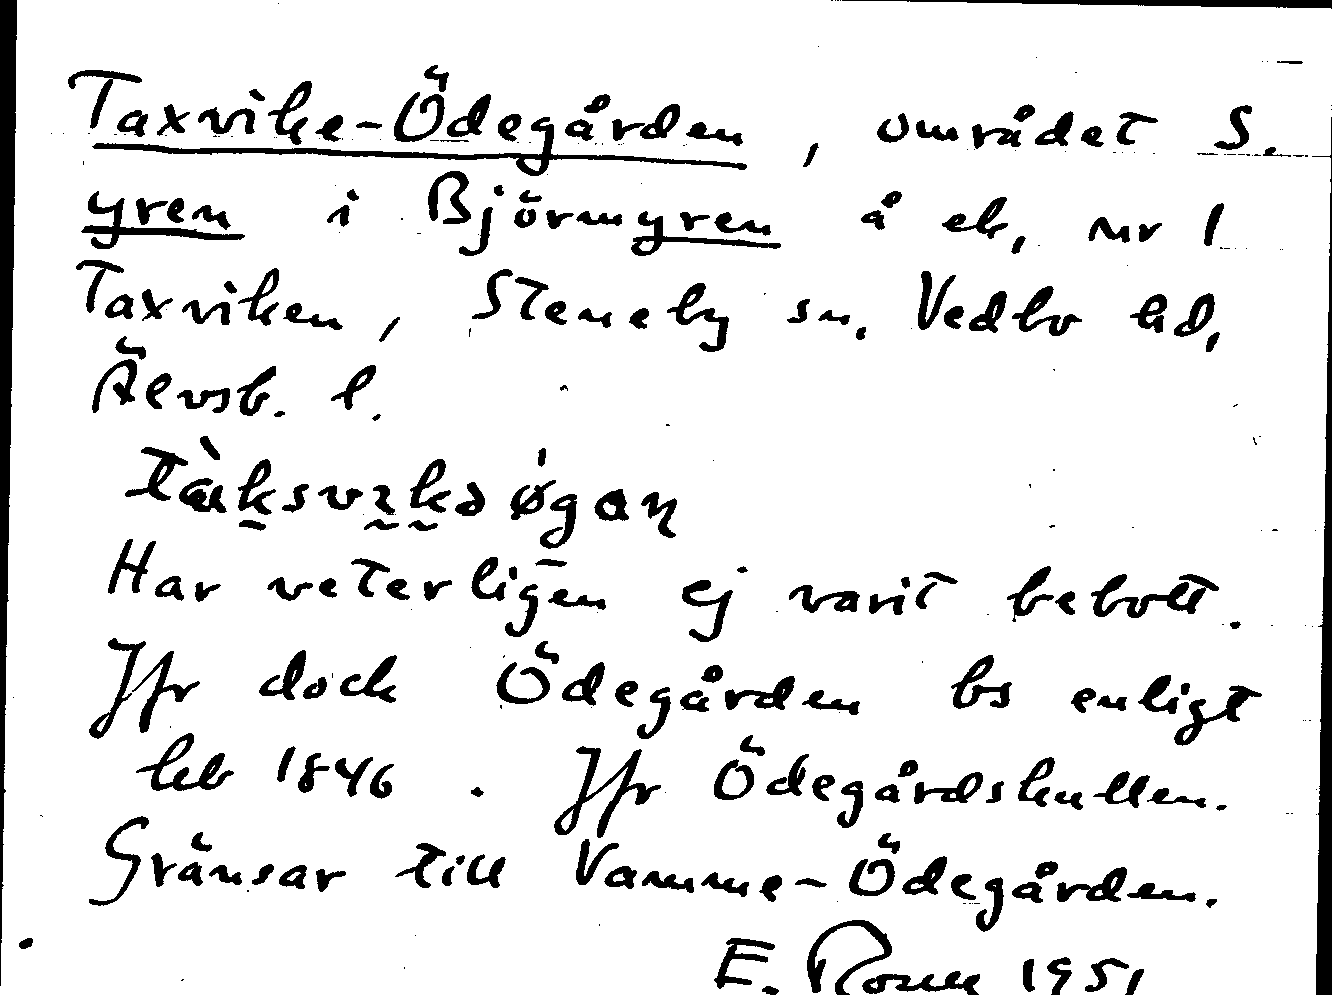 Taxvike-Ödegården, området S.
yren i Björmyren å ek, nr 1
Taxviken, Steneby sn, Vedbo hd,
Älvsb. l.
Har veterligen ej varit bebott.
Jfr dock Ödegården bs enligt
hb 1846. Jfr Ödegårdskullen.
Gränsar till Vamme-Ödegården.
E. 1951